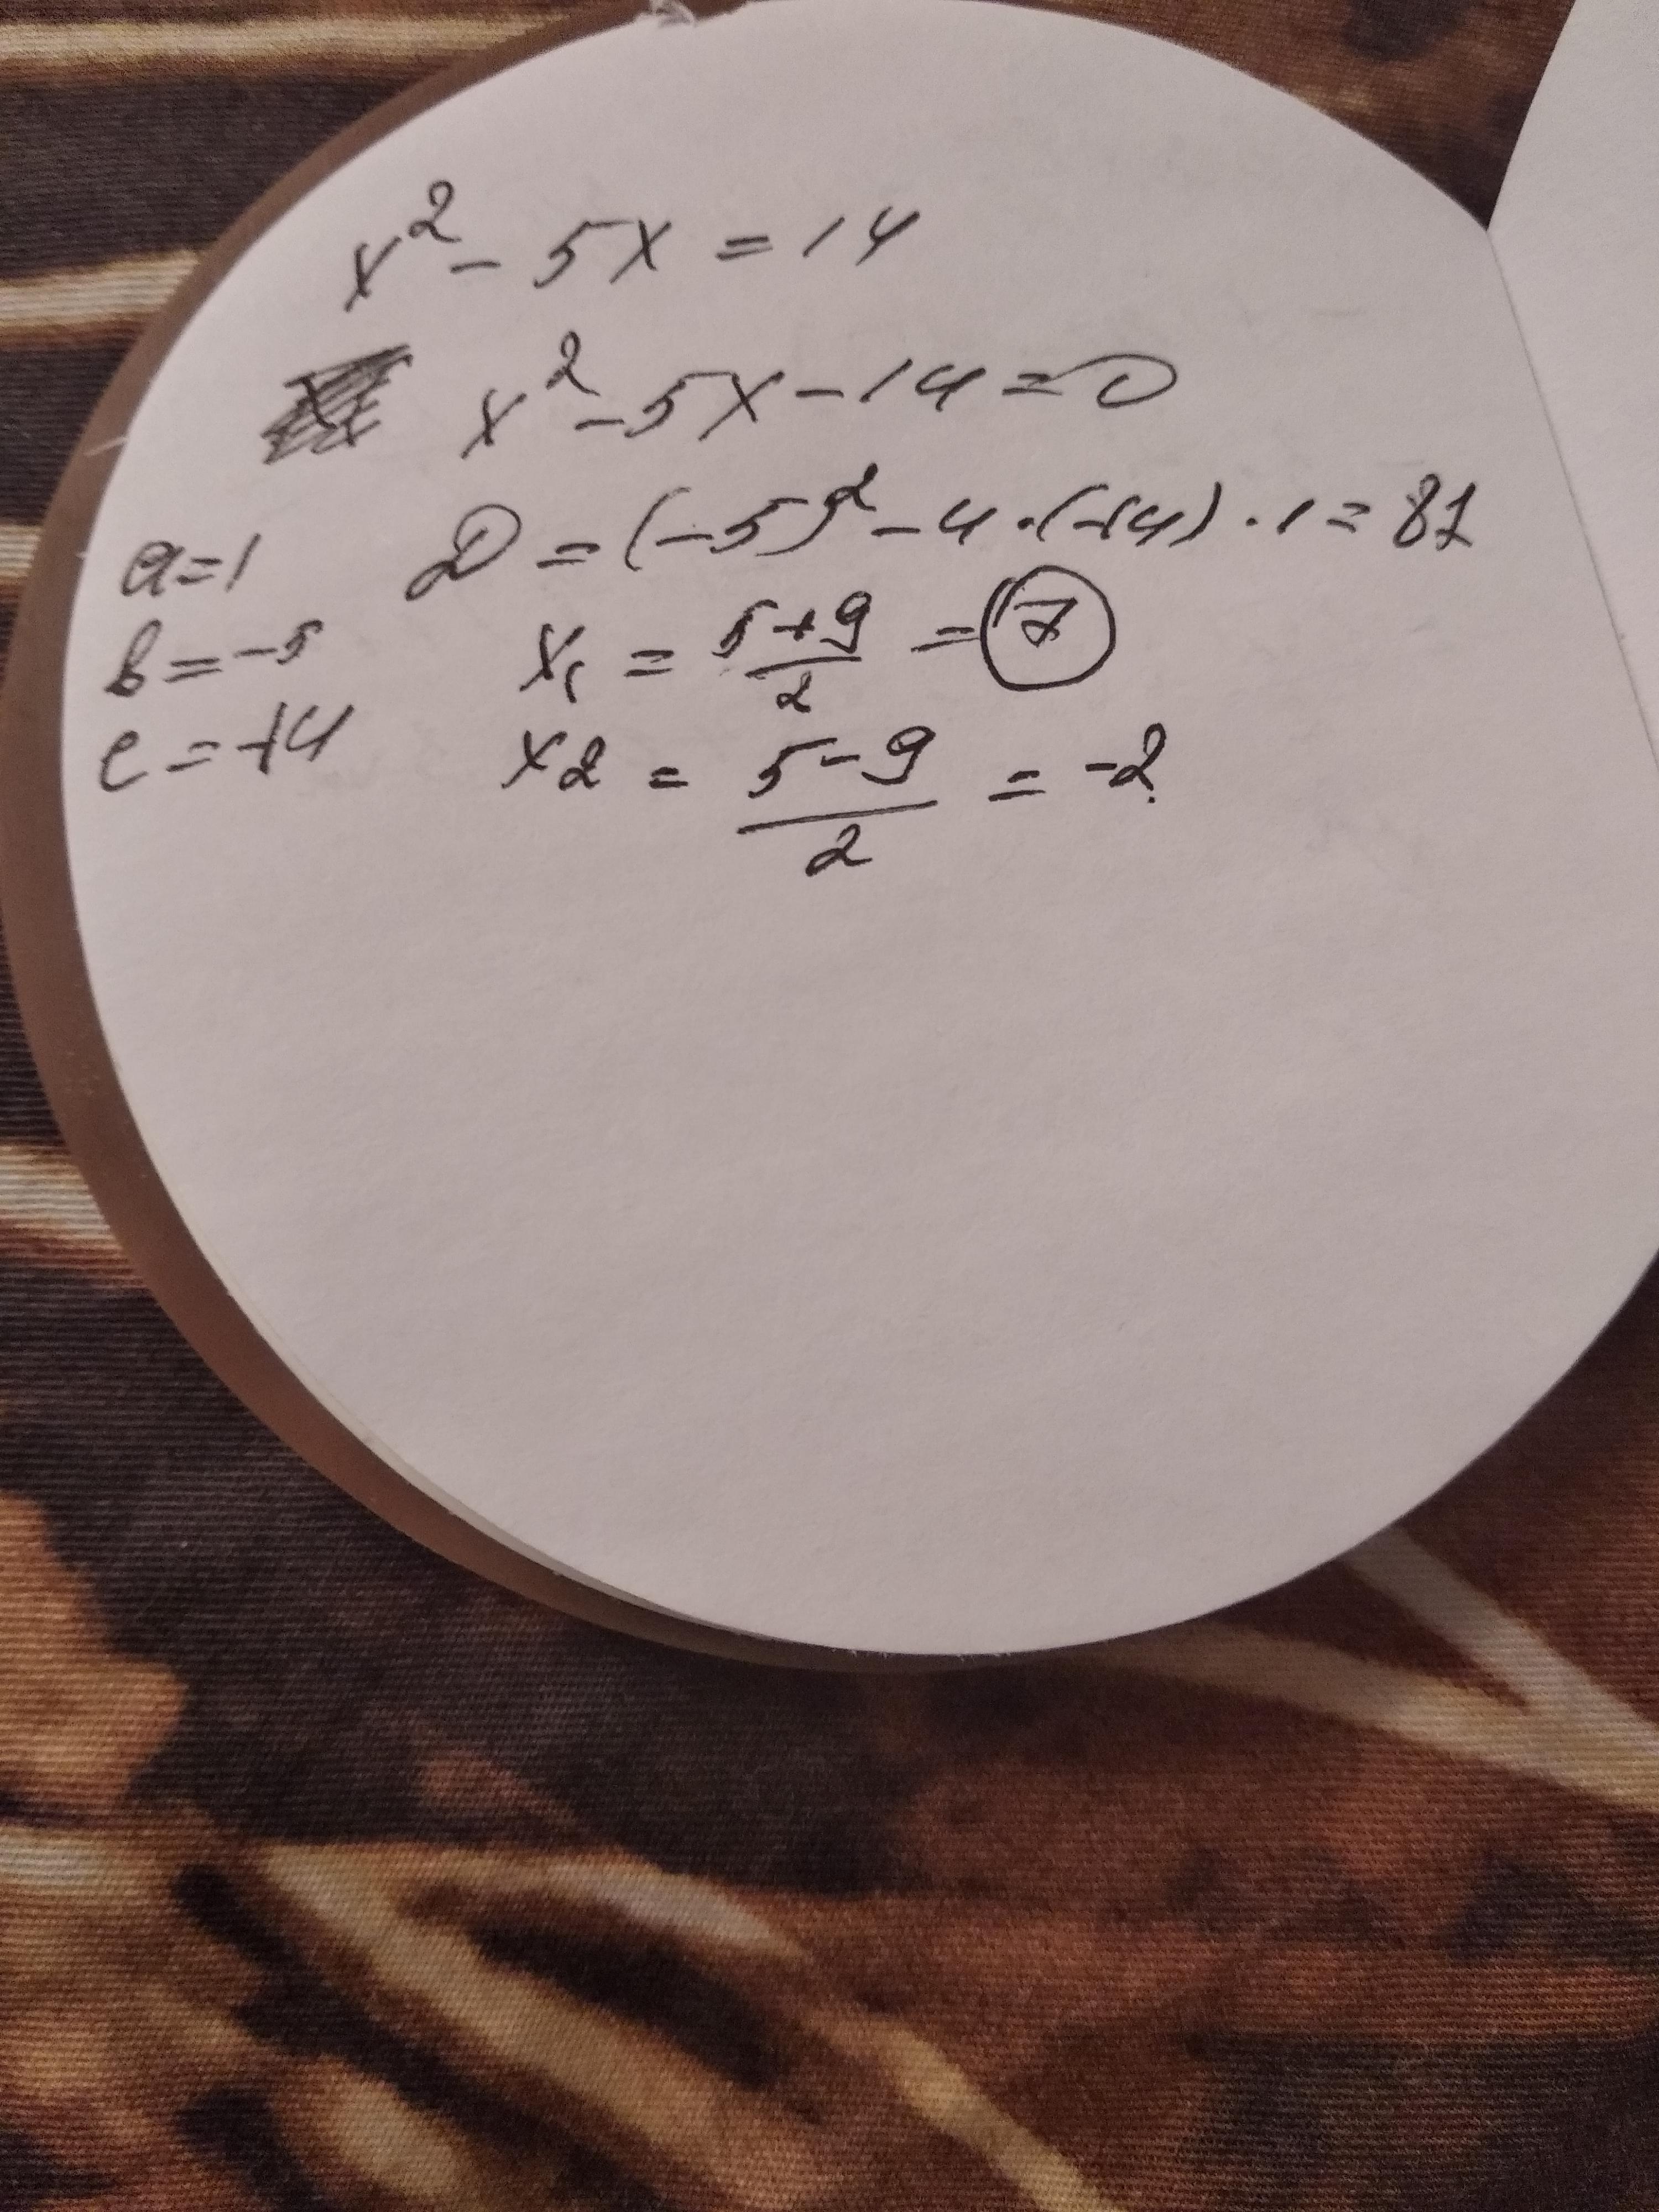 x² - 5x = 14
x² - 5x - 14 = 0
a = 1
D = (-5)² - 4 · (-14) · 1 = 81
b = -5
x₁ = (5+9)/2 = 7
c = -14
x2 = (5-9)/2 = -2.